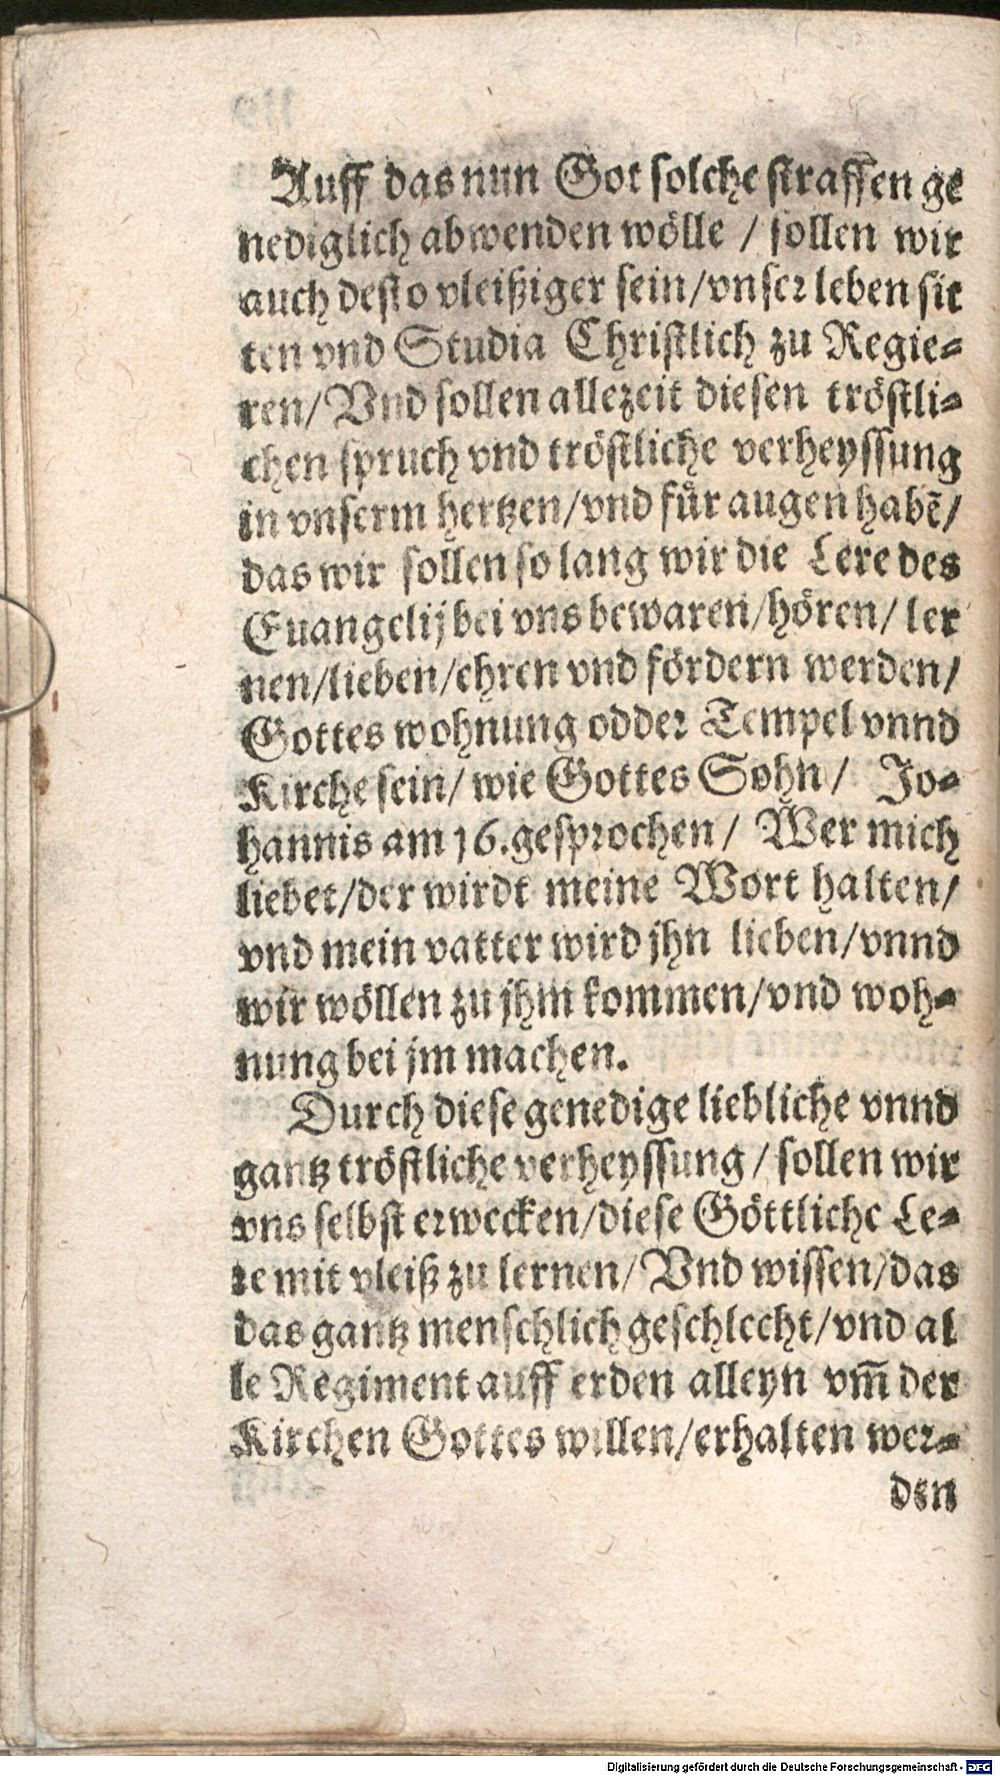 Auff das nun Got solche straffen ge
nediglich abwenden wölle / sollen wir
auch desto vleißiger sein/vnser leben sit
ten vnd Studia Christlich zu Regie⸗
ren/ Vnd sollen allezeit diesen tröstli⸗
chen spruch vnd tröstliche verheyssung
in vnserm hertzen/vnd für augen habē/
das wir sollen so lang wir die Lere des
Euangelij bei vns bewaren/hören/ ler
nen/lieben/ehren vnd fördern werden/
Gottes wohnung odder Tempel vnnd
Kirche sein/ wie Gottes Sohn/ Jo⸗
hannis am 16. gesprochen/ Wer mich
liebet/der wirdt meine Wort halten/
vnd mein vatter wird jhn lieben/vnnd
wir wöllen zu jhm kommen/vnd woh⸗
nung bei jm machen.
Durch diese genedige liebliche vnnd
gantz tröstliche verheyssung/ sollen wir
vns selbst erwecken/diese Göttliche Le⸗
re mit vleiß zu lernen/ Vnd wissen/das
das gantz menschlich geschlecht/vnd al
le Regiment auff erden alleyn vm̄ der
Kirchen Gottes willen/erhalten wer⸗
den
Digitalisierung gefördert durch die Deutsche Forschungsgemeinschaft - DFG